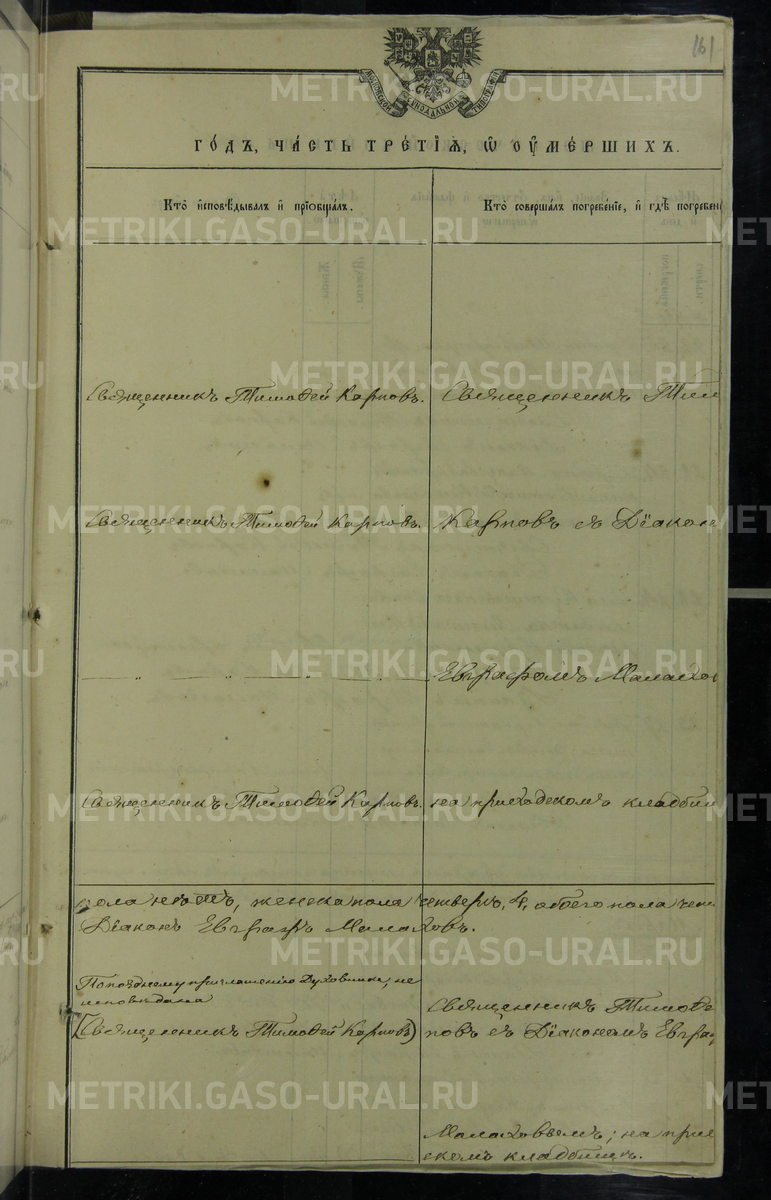 161
МОСКОВСКОЙ СѴНОДАЛЬНОЙ ТИПОГРАФІИ
ГО́ДЪ, ЧА́СТЬ ТРЕ́ТІѦ, Ѿ ОУ҆МЕ́РШИХЪ.
Кто̀ и҆сповѣ́дывалъ и҆ прїѡбща́лъ.
Кто̀ соверша́лъ погребе́нїе, и҆ гдѣ̀ погребен
Священникъ Тимоѳей Карповъ.
Священникъ Тим
Священникъ Тимоѳей Карповъ.
Карповъ съ Діакон
Евграфомъ Малахов
Священникъ Тимоѳей Карповъ.
на приходскомъ кладбищ
пола нѣтъ, женска пола четверо, 4, обоего пола чет
Діаконъ Евграфъ Малаховъ.
По позднему приглашенію Духовника, не
исповѣдана
(Священникъ Тимоѳей Карповъ)
Священникъ Тимоѳе
повъ съ Діакономъ Евграф
Малаховымъ; на прихо
скомъ кладбищѣ.
METRIKI.GASO-URAL.RU